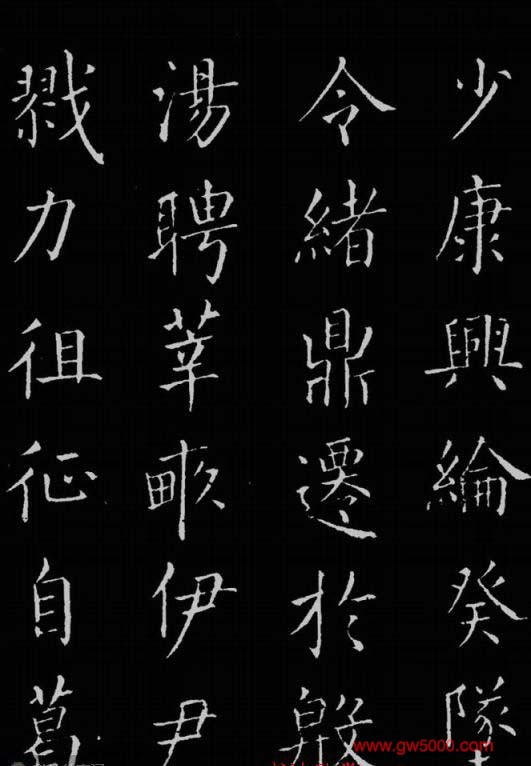 少康興綸癸墜
令緒鼎遷於殷
湯聘莘畎伊尹
戮力徂征自葛
www.gw5000.com